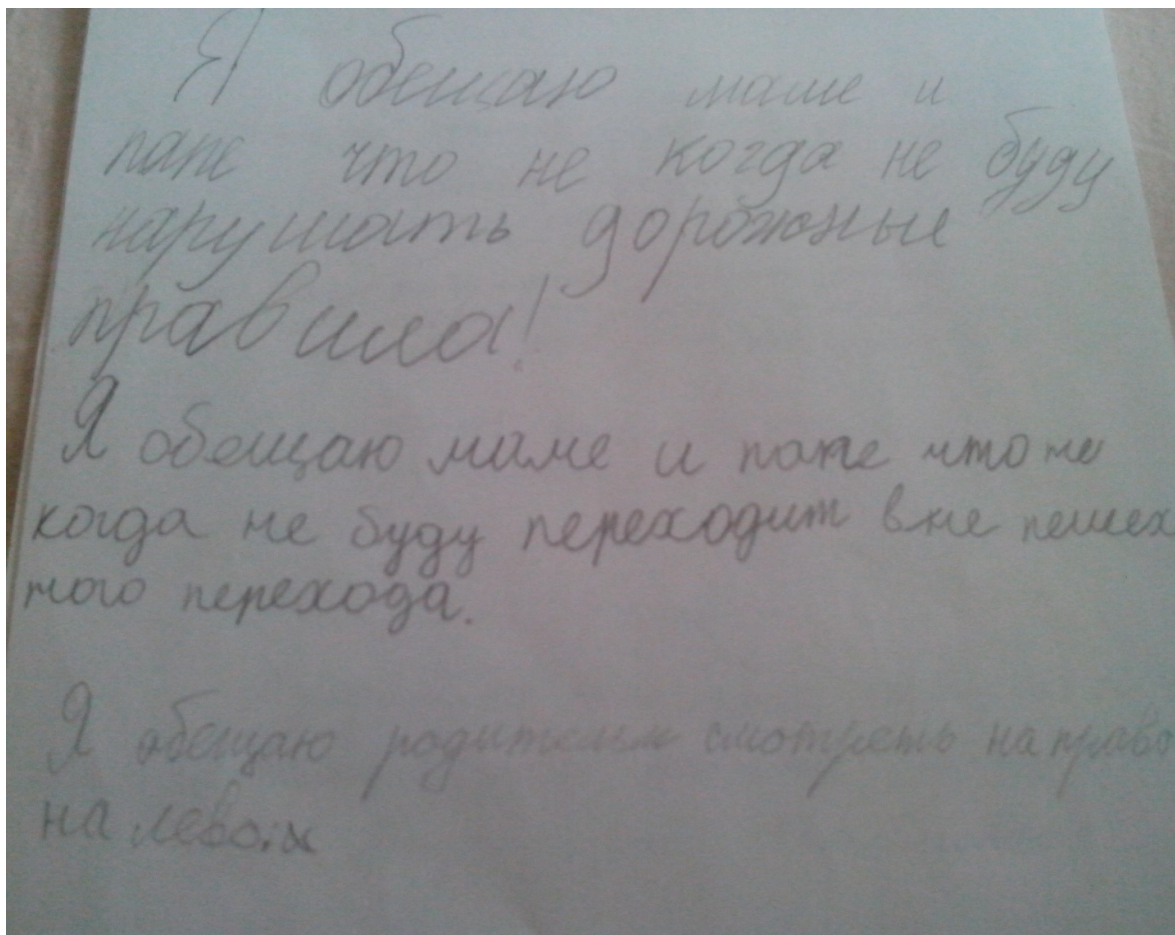 Я обещаю маме и
папе что не когда не буду
нарушать дорожные
правила!
Я обещаю маме и папе что не
когда не буду переходит вне пешех
ного перехода.
Я обещаю родителям смотреть на право
на лево.